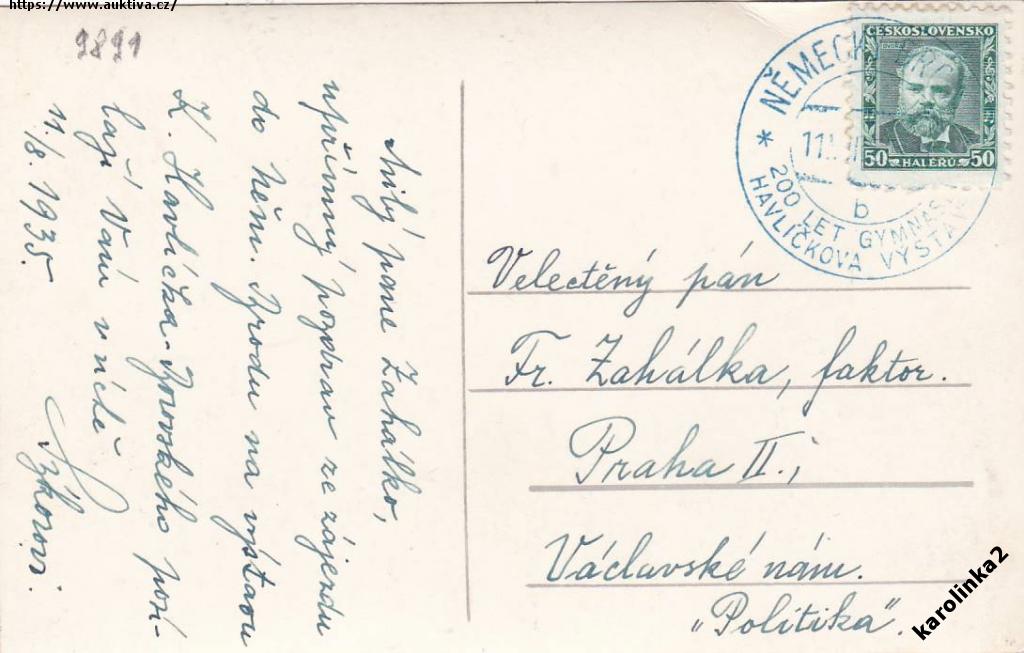 https://www.auktiva.cz/
9891
Milý pane Zahálko,
upřímný pozdrav ze zájezdu
do Něm. Brodu na výstavu
K. Havlíčka-Borovského posí-
lají Vám v úctě
11./8. 1935.
ČESKOSLOVENSKO
50 HALÉŘŮ 50
* NĚMECKÝ
11.
b
200 LET GYMNASIA
HAVLÍČKOVA VÝSTAVA
Velectěný pán
Fr. Zahálka, faktor.
Praha II.,
Václavské nám.
„Politika".
karolinka2